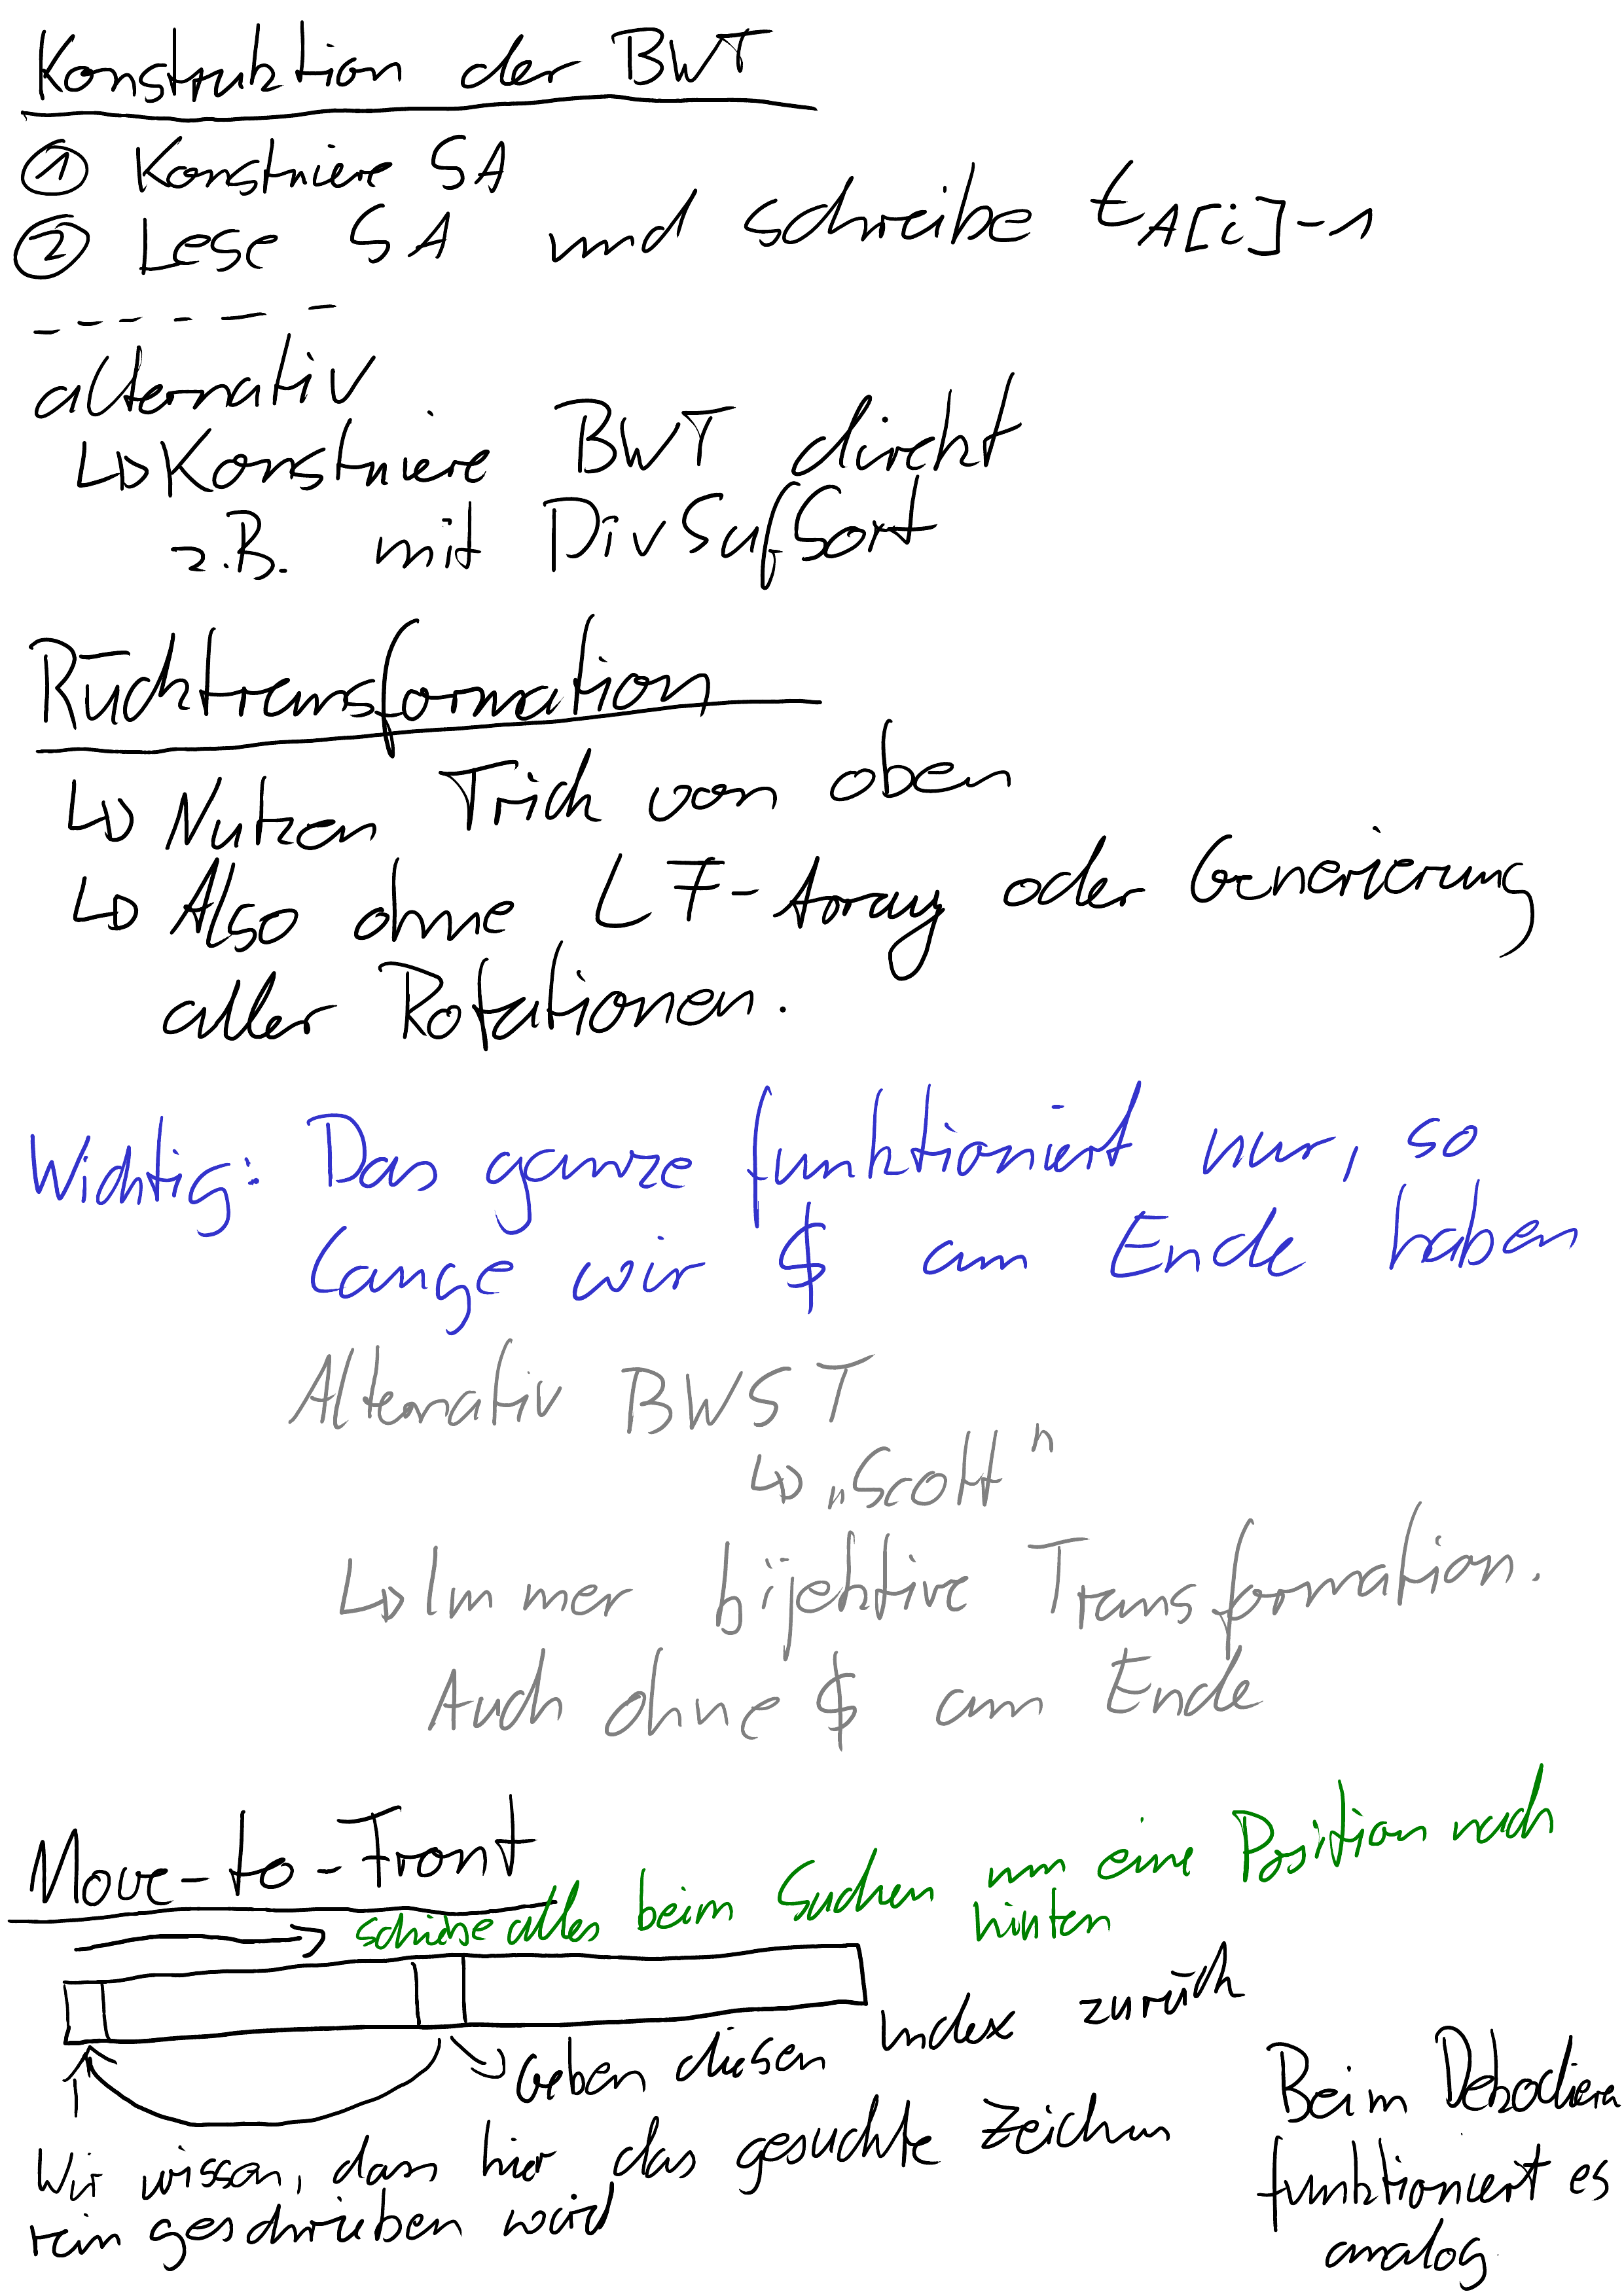 Konstruktion der BWT
① Konstruiere SA
② Lese SA und schreibe t_A[i]-1
alternativ
↳ Konstruiere BWT direkt
z.B. mit DivSufSort
Rücktransformation
↳ Nutzen Trick von oben
↳ Also ohne LF-Array oder Generierung
aller Rotationen.
Wichtig: Das ganze funktioniert nur, so
lange wir $ am Ende haben
Alternativ BWST
↳ „Scott"
↳ Immer bijektive Transformation.
Auch ohne $ am Ende
Move-to-Front
schiebe alles beim Suchen um eine Position nach
hinten
Geben diesen Index zurück
Wir wissen, dass hier das gesuchte Zeichen
rein geschrieben wird
Beim Dekodieren
funktioniert es
analog